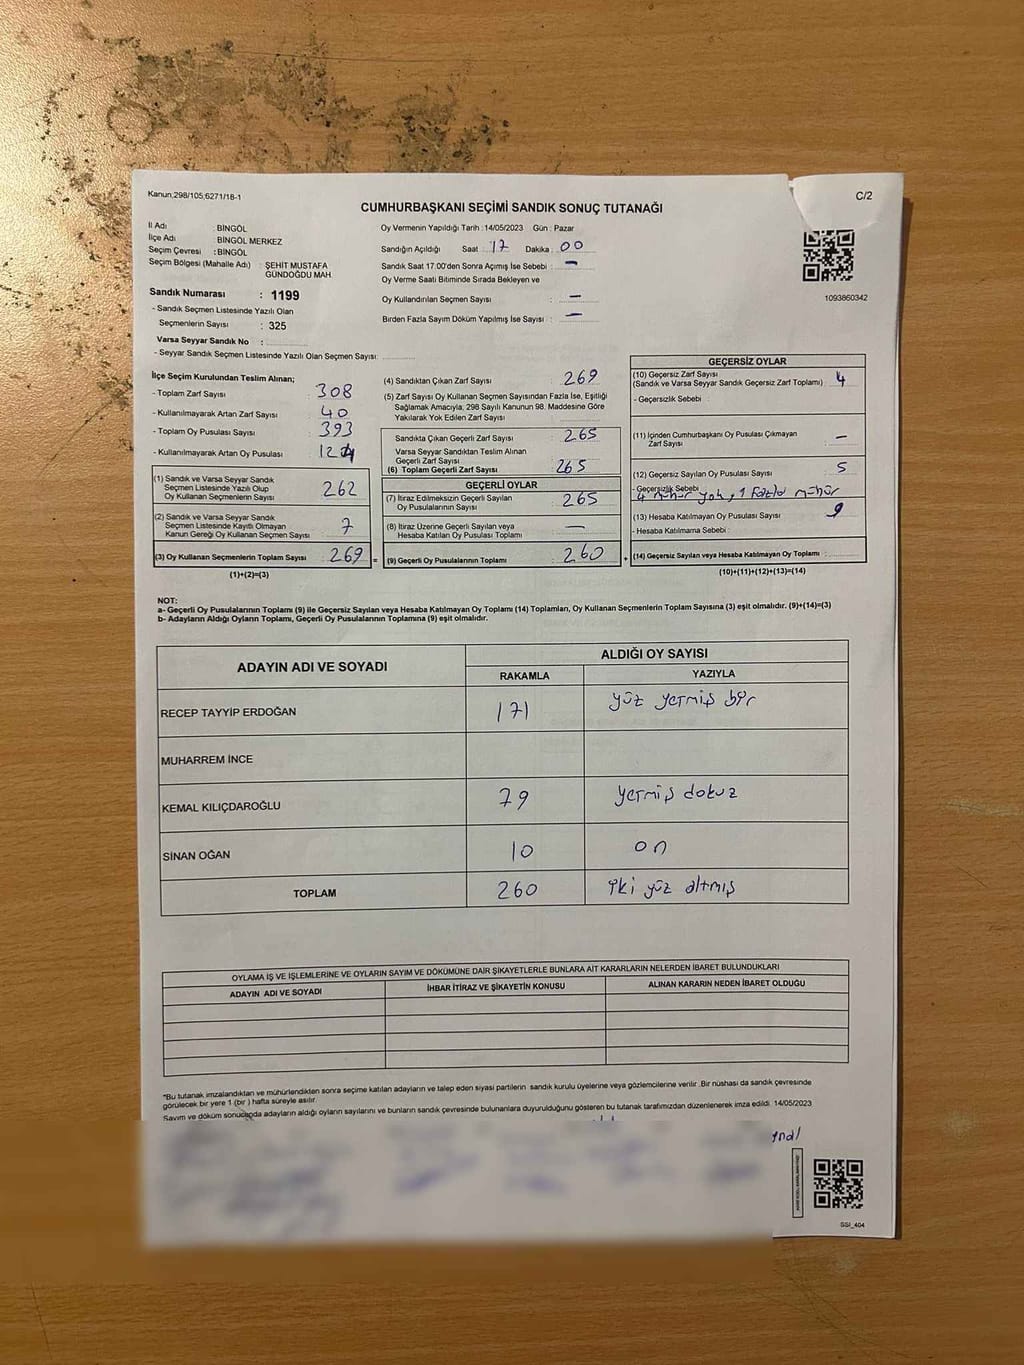 Kanun;298/105;6271/18-1
C/2
CUMHURBAŞKANI SEÇİMİ SANDIK SONUÇ TUTANAĞI
İl Adı : BİNGÖL
İlçe Adı : BİNGÖL MERKEZ
Seçim Çevresi : BİNGÖL
Seçim Bölgesi (Mahalle Adı) : ŞEHİT MUSTAFA
GÜNDOĞDU MAH.
Sandık Numarası : 1199
- Sandık Seçmen Listesinde Yazılı Olan
Seçmenlerin Sayısı : 325
Varsa Seyyar Sandık No :
- Seyyar Sandık Seçmen Listesinde Yazılı Olan Seçmen Sayısı:
Oy Vermenin Yapıldığı Tarih : 14/05/2023 Gün : Pazar
Sandığın Açıldığı Saat : 17 Dakika : 00
Sandık Saat 17:00'den Sonra Açımış İse Sebebi : —
Oy Verme Saati Bitiminde Sırada Bekleyen ve
Oy Kullandırılan Seçmen Sayısı : —
Birden Fazla Sayım Döküm Yapılmış İse Sayısı : —
1093860342
İlçe Seçim Kurulundan Teslim Alınan;
- Toplam Zarf Sayısı : 308
- Kullanılmayarak Artan Zarf Sayısı : 40
- Toplam Oy Pusulası Sayısı : 393
- Kullanılmayarak Artan Oy Pusulası : 124
(1) Sandık ve Varsa Seyyar Sandık
Seçmen Listesinde Yazılı Olup
Oy Kullanan Seçmenlerin Sayısı : 262
(2) Sandık ve Varsa Seyyar Sandık
Seçmen Listesinde Kayıtlı Olmayan
Kanun Gereği Oy Kullanan Seçmen Sayısı : 7
(3) Oy Kullanan Seçmenlerin Toplam Sayısı : 269 =
(1)+(2)=(3)
(4) Sandıktan Çıkan Zarf Sayısı : 269
(5) Zarf Sayısı Oy Kullanan Seçmen Sayısından Fazla İse, Eşitliği
Sağlamak Amacıyla; 298 Sayılı Kanunun 98. Maddesine Göre
Yakılarak Yok Edilen Zarf Sayısı
Sandıkta Çıkan Geçerli Zarf Sayısı : 265
Varsa Seyyar Sandıktan Teslim Alınan
Geçerli Zarf Sayısı
(6) Toplam Geçerli Zarf Sayısı : 265
GEÇERLİ OYLAR
(7) İtiraz Edilmeksizin Geçerli Sayılan
Oy Pusulalarının Sayısı : 265
(8) İtiraz Üzerine Geçerli Sayılan veya
Hesaba Katılan Oy Pusulası Toplamı : —
(9) Geçerli Oy Pusulalarının Toplamı : 260 +
GEÇERSİZ OYLAR
(10) Geçersiz Zarf Sayısı
(Sandık ve Varsa Seyyar Sandık Geçersiz Zarf Toplamı) : 4
- Geçersizlik Sebebi :
(11) İçinden Cumhurbaşkanı Oy Pusulası Çıkmayan
Zarf Sayısı : —
(12) Geçersiz Sayılan Oy Pusulası Sayısı : 5
- Geçersizlik Sebebi :
4 mühür yok, 1 fazla mühür
(13) Hesaba Katılmayan Oy Pusulası Sayısı : 9
- Hesaba Katılmama Sebebi :
(14) Geçersiz Sayılan veya Hesaba Katılmayan Oy Toplamı :
(10)+(11)+(12)+(13)=(14)
NOT:
a- Geçerli Oy Pusulalarının Toplamı (9) ile Geçersiz Sayılan veya Hesaba Katılmayan Oy Toplamı (14) Toplamları, Oy Kullanan Seçmenlerin Toplam Sayısına (3) eşit olmalıdır. (9)+(14)=(3)
b- Adayların Aldığı Oyların Toplamı, Geçerli Oy Pusulalarının Toplamına (9) eşit olmalıdır.
ADAYIN ADI VE SOYADI ALDIĞI OY SAYISI
RAKAMLA YAZIYLA
RECEP TAYYİP ERDOĞAN 171 yüz yetmiş bir
MUHARREM İNCE
KEMAL KILIÇDAROĞLU 79 yetmiş dokuz
SİNAN OĞAN 10 on
TOPLAM 260 iki yüz altmış
OYLAMA İŞ VE İŞLEMLERİNE VE OYLARIN SAYIM VE DÖKÜMÜNE DAİR ŞİKAYETLERLE BUNLARA AİT KARARLARIN NELERDEN İBARET BULUNDUKLARI
ADAYIN ADI VE SOYADI İHBAR İTİRAZ VE ŞİKAYETİN KONUSU ALINAN KARARIN NEDEN İBARET OLDUĞU
*Bu tutanak imzalandıktan ve mühürlendikten sonra seçime katılan adayların ve talep eden siyasi partilerin sandık kurulu üyelerine veya gözlemcilerine verilir. Bir nüshası da sandık çevresinde
görülecek bir yere 1 (bir) hafta süreyle asılır.
Sayım ve döküm sonucunda adayların aldığı oyların sayılarını ve bunların sandık çevresinde bulunanlara duyurulduğunu gösteren bu tutanak tarafımızdan düzenlenerek imza edildi. 14/05/2023
SSİ_404